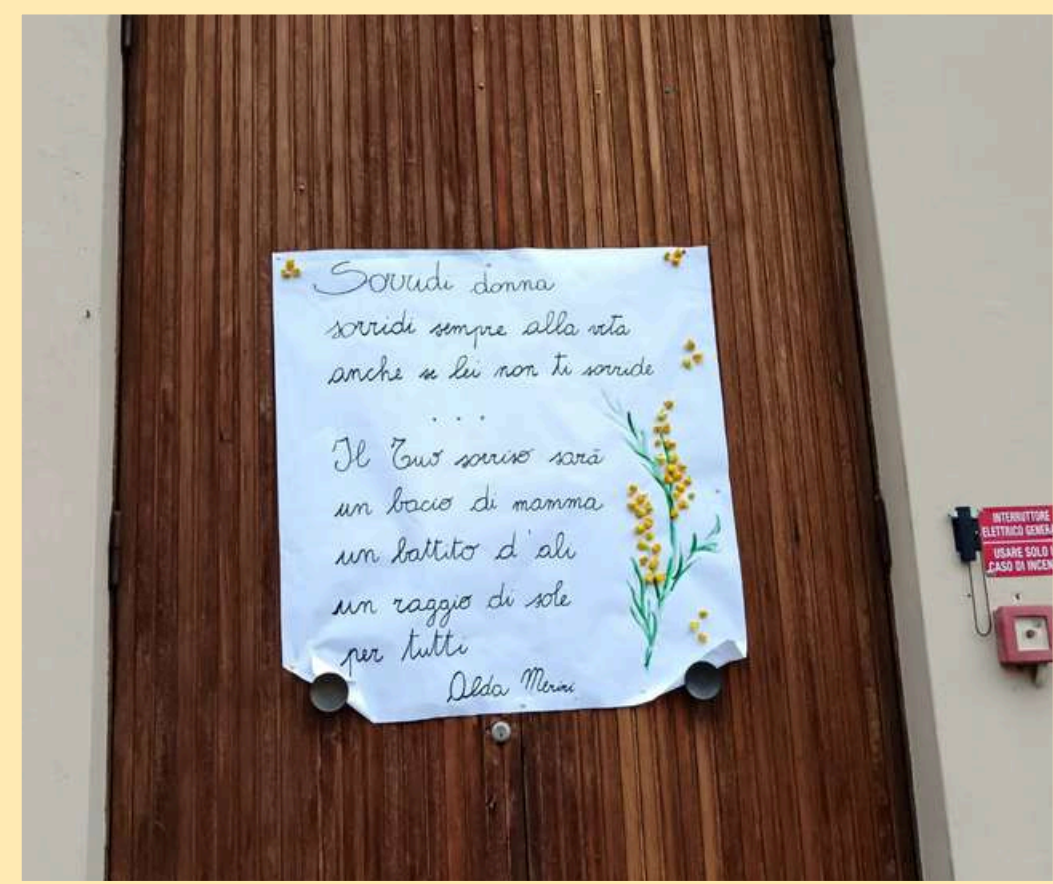 Sorridi donna
sorridi sempre alla vita
anche se lei non ti sorride
...
Il Tuo sorriso sarà
un bacio di mamma
un battito d'ali
un raggio di sole
per tutti
Alda Merini
INTERRUTTORE
ELETTRICO GENERA
USARE SOLO I
CASO DI INCEN